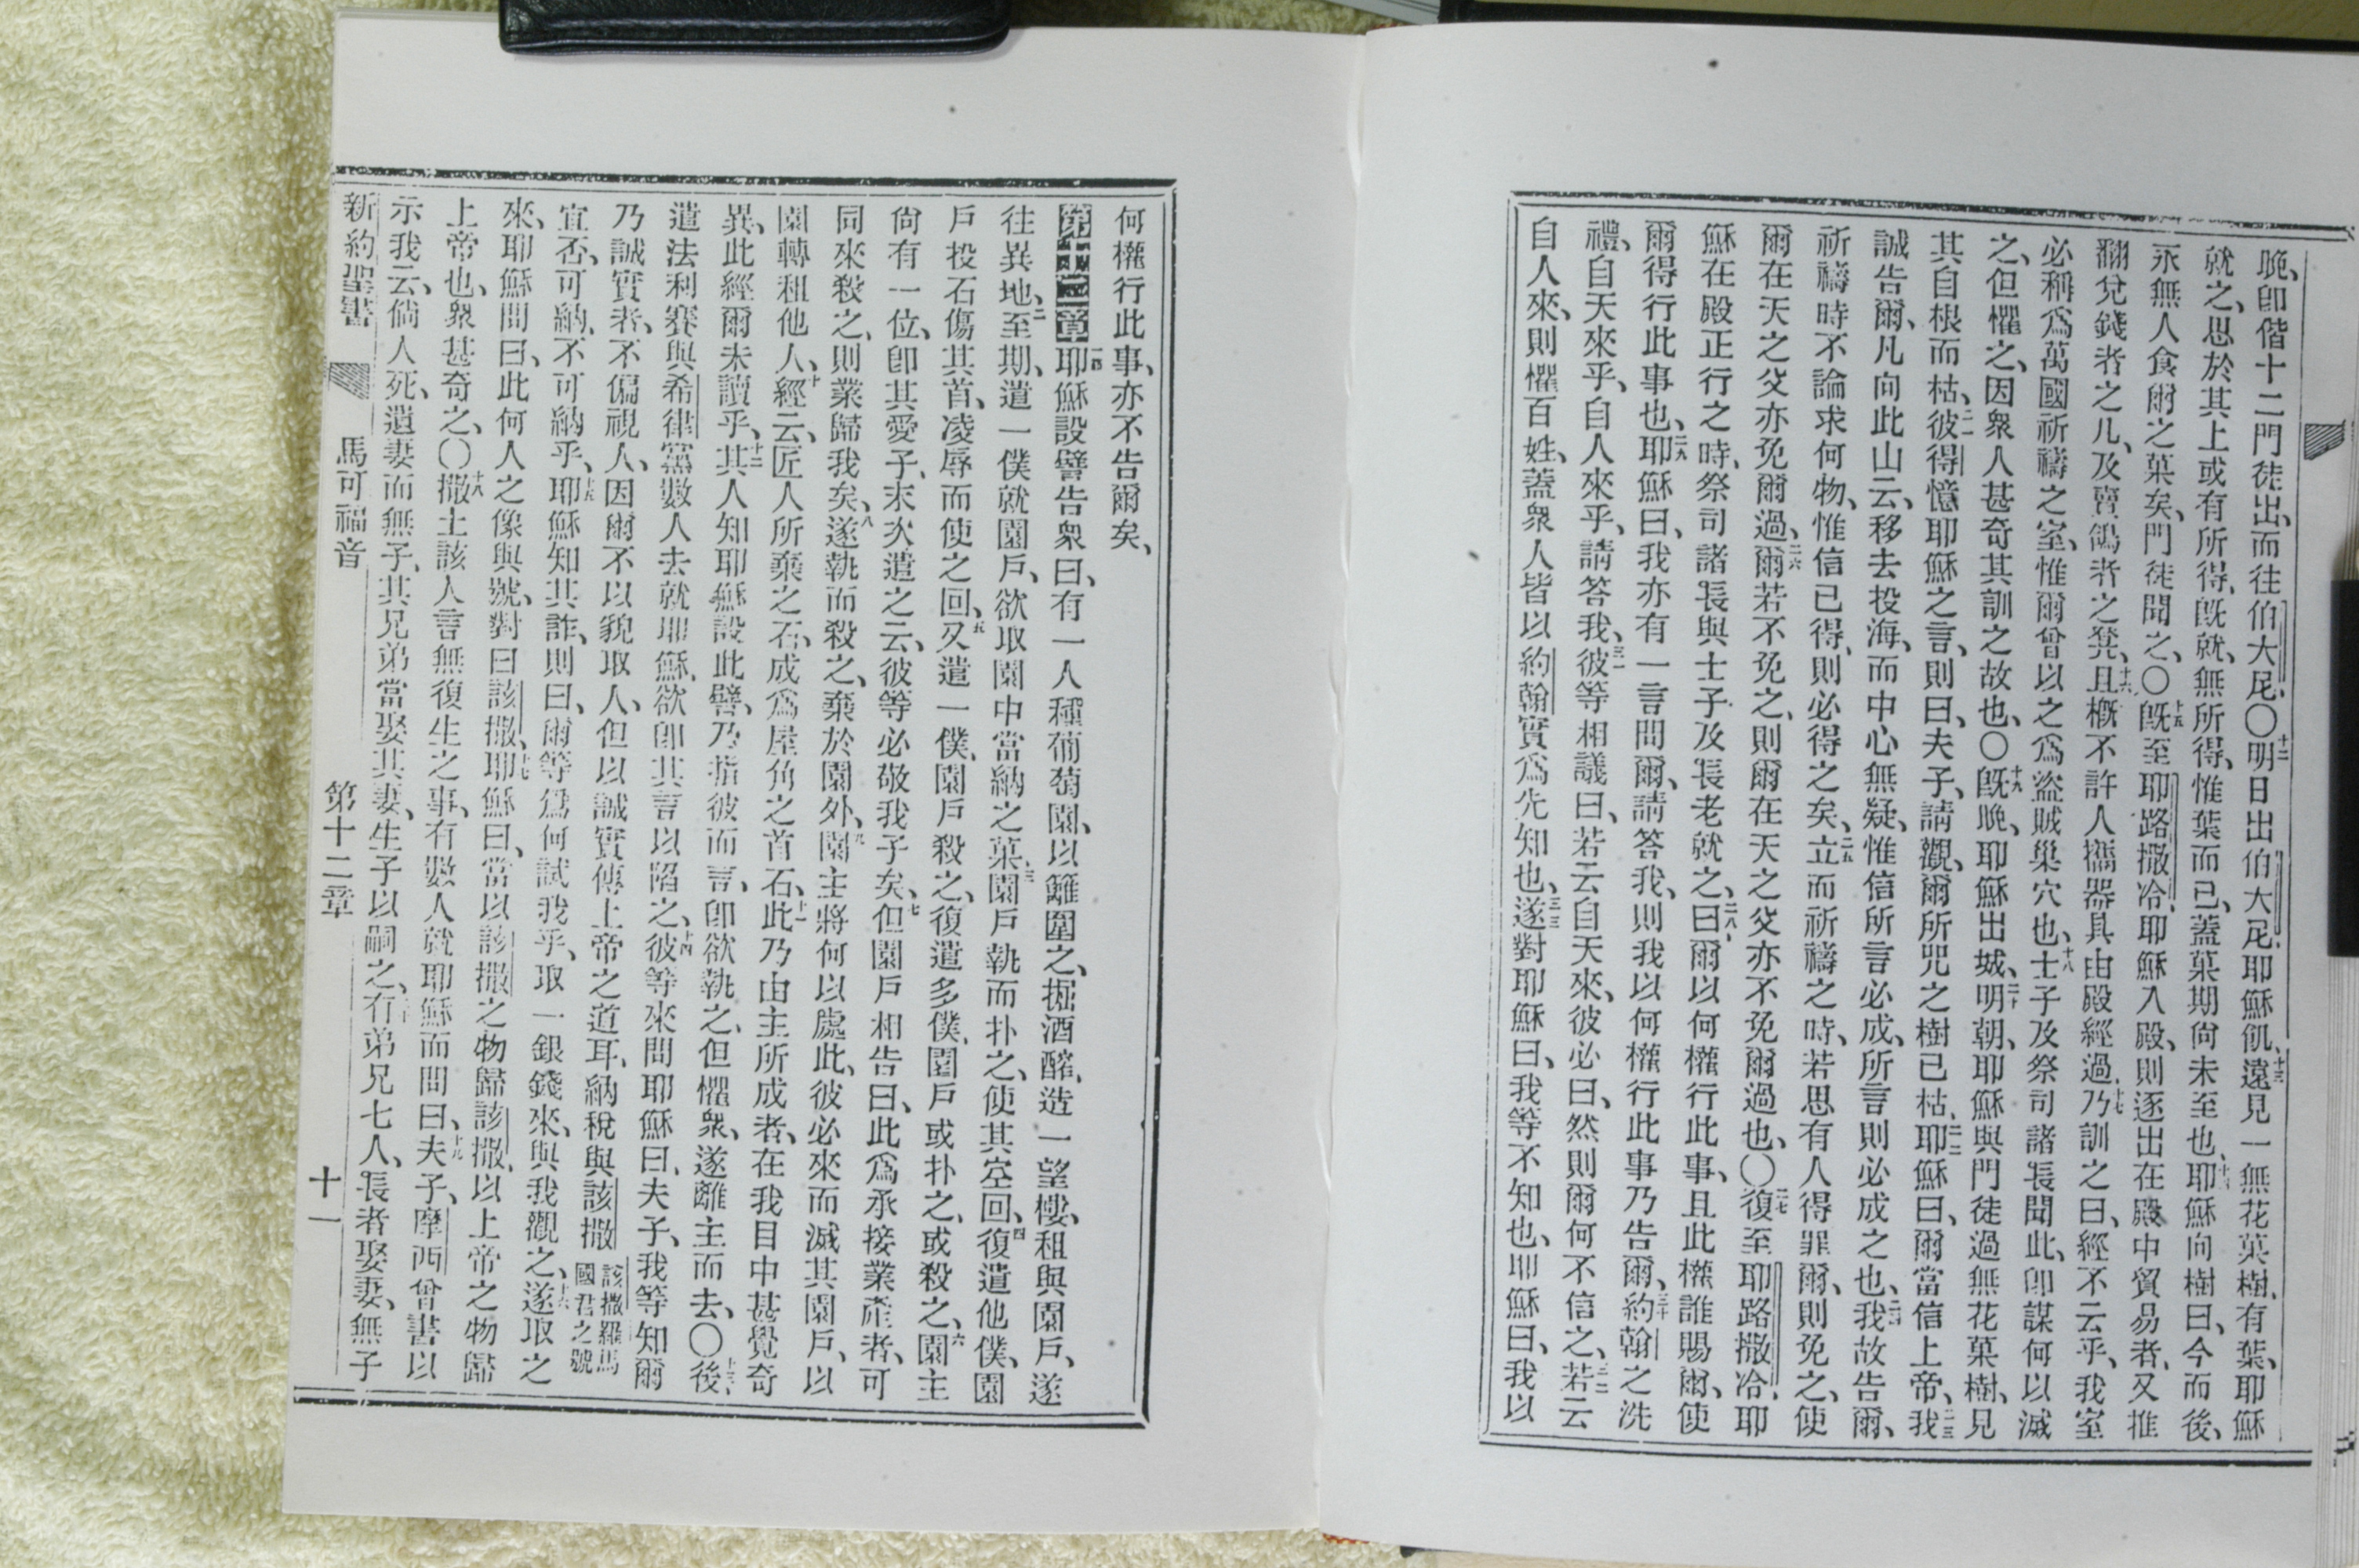 晚、卽偕十二門徒出、而往伯大尼、〇十二明日出伯大尼、耶穌飢、十三遠見一無花菓樹、有葉、耶穌
就之、思於其上或有所得、旣就、無所得、惟葉而已、蓋菓期尙未至也、十四耶穌向樹曰、今而後、
永無人食爾之菓矣、門徒聞之、〇十五旣至耶路撒冷、耶穌入殿、則逐出在殿中貿易者、又推
翻兌錢者之几、及賣鴿者之凳、十六且槪不許人攜器具由殿經過、十七乃訓之曰、經不云乎、我室
必稱爲萬國祈禱之室、惟爾曾以之爲盜賊巢穴也、十八士子及祭司諸長聞此、卽謀何以滅
之、但懼之、因衆人甚奇其訓之故也、〇十九旣晚、耶穌出城、二十明朝、耶穌與門徒過無花菓樹、見
其自根而枯、二一彼得憶耶穌之言、則曰、夫子、請觀、爾所咒之樹已枯、二二耶穌曰、爾當信上帝、二三我
誠告爾、凡向此山云、移去投海、而中心無疑、惟信所言必成、所言則必成之也、二四我故告爾、
祈禱時不論求何物、惟信已得、則必得之矣、二五立而祈禱之時、若思有人得罪爾、則免之、使
爾在天之父亦免爾過、二六爾若不免之、則爾在天之父亦不免爾過也、〇二七復至耶路撒冷、耶
穌在殿正行之時、祭司諸長與士子及長老就之、二八曰、爾以何權行此事、且此權誰賜爾、使
爾得行此事也、二九耶穌曰、我亦有一言問爾、請答我、則我以何權行此事乃告爾、三十約翰之洗
禮、自天來乎、自人來乎、請答我、三一彼等相議曰、若云自天來、彼必曰、然則爾何不信之、三二若云
自人來、則懼百姓、蓋衆人皆以約翰實爲先知也、三三遂對耶穌曰、我等不知也、耶穌曰、我以
何權行此事、亦不告爾矣、
第十二章 一耶穌設譬告衆曰、有一人種葡萄園、以籬圍之、掘酒醡、造一望樓、租與園戶、遂
往異地、二至期、遣一僕就園戶、欲取園中當納之菓、三園戶執而扑之、使其空回、四復遣他僕、園
戶投石傷其首、凌辱而使之回、五又遣一僕、園戶殺之、復遣多僕、園戶或扑之、或殺之、六園主
尙有一位、卽其愛子、末次遣之云、彼等必敬我子矣、七但園戶相告曰、此爲承接業產者、可
同來殺之、則業歸我矣、八遂執而殺之、棄於園外、九園主將何以處此、彼必來而滅其園戶、以
園轉租他人、十經云、匠人所棄之石、成爲屋角之首石、十一此乃由主所成者、在我目中甚覺奇
異、此經爾未讀乎、十二其人知耶穌設此譬、乃指彼而言、卽欲執之、但懼衆、遂離主而去、〇十三後、
遣法利賽與希律黨數人去就耶穌、欲卽其言以陷之、十四彼等來問耶穌曰、夫子、我等知爾
乃誠實者、不偏視人、因爾不以貌取人、但以誠實傳上帝之道耳、納稅與該撒 該撒羅馬國君之號
宜否、可納、不可納乎、十五耶穌知其詐、則曰、爾等爲何試我乎、取一銀錢來、與我觀之、十六遂取之
來、耶穌問曰、此何人之像與號、對曰該撒、十七耶穌曰、當以該撒之物歸該撒、以上帝之物歸
上帝也、衆甚奇之、〇十八撒土該人言無復生之事、有數人就耶穌而問曰、十九夫子、摩西曾書以
示我云、倘人死、遺妻而無子、其兄弟當娶其妻、生子以嗣之、二十有弟兄七人、長者娶妻、無子
新約聖書 馬可福音 第十二章 十一